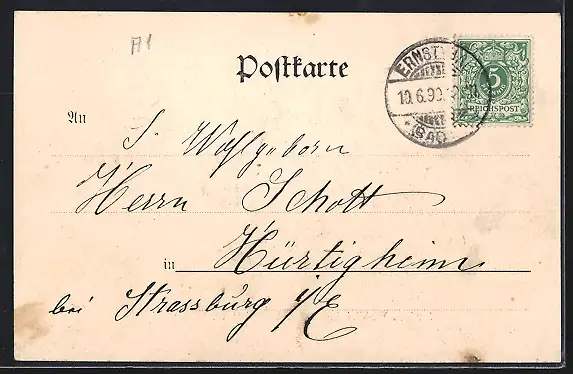 A1
Postkarte
5
REICHSPOST
10.6.99
An
S. Wohlgeborn
Herrn Schott
in Hürtigheim
bei Strassburg i/E